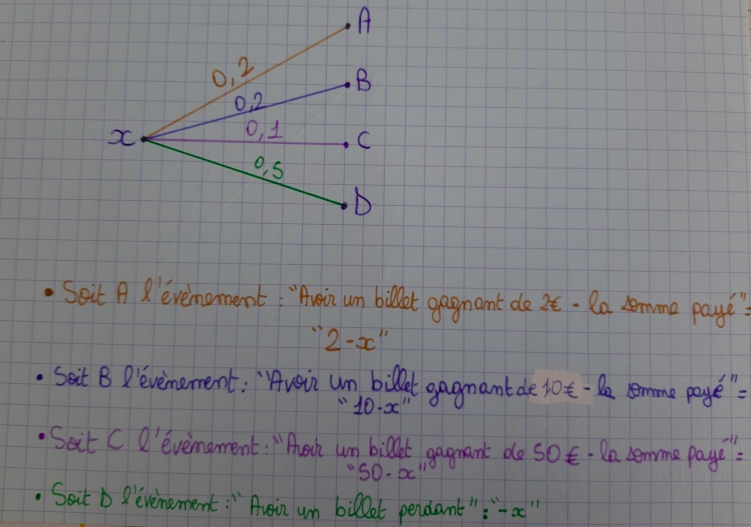 A
0,2
B
0,2
x
0,1
C
0,5
D
• Soit A l'évènement : "Avoir un billet gagnant de 2€ - la somme payé" =
"2-x"
• Soit B l'évènement : "Avoir un billet gagnant de 10€ - la somme payé" =
"10-x"
• Soit C l'évènement : "Avoir un billet gagnant de 50€ - la somme payé" =
"50-x"
• Soit D l'évènement : "Avoir un billet perdant" : "-x"